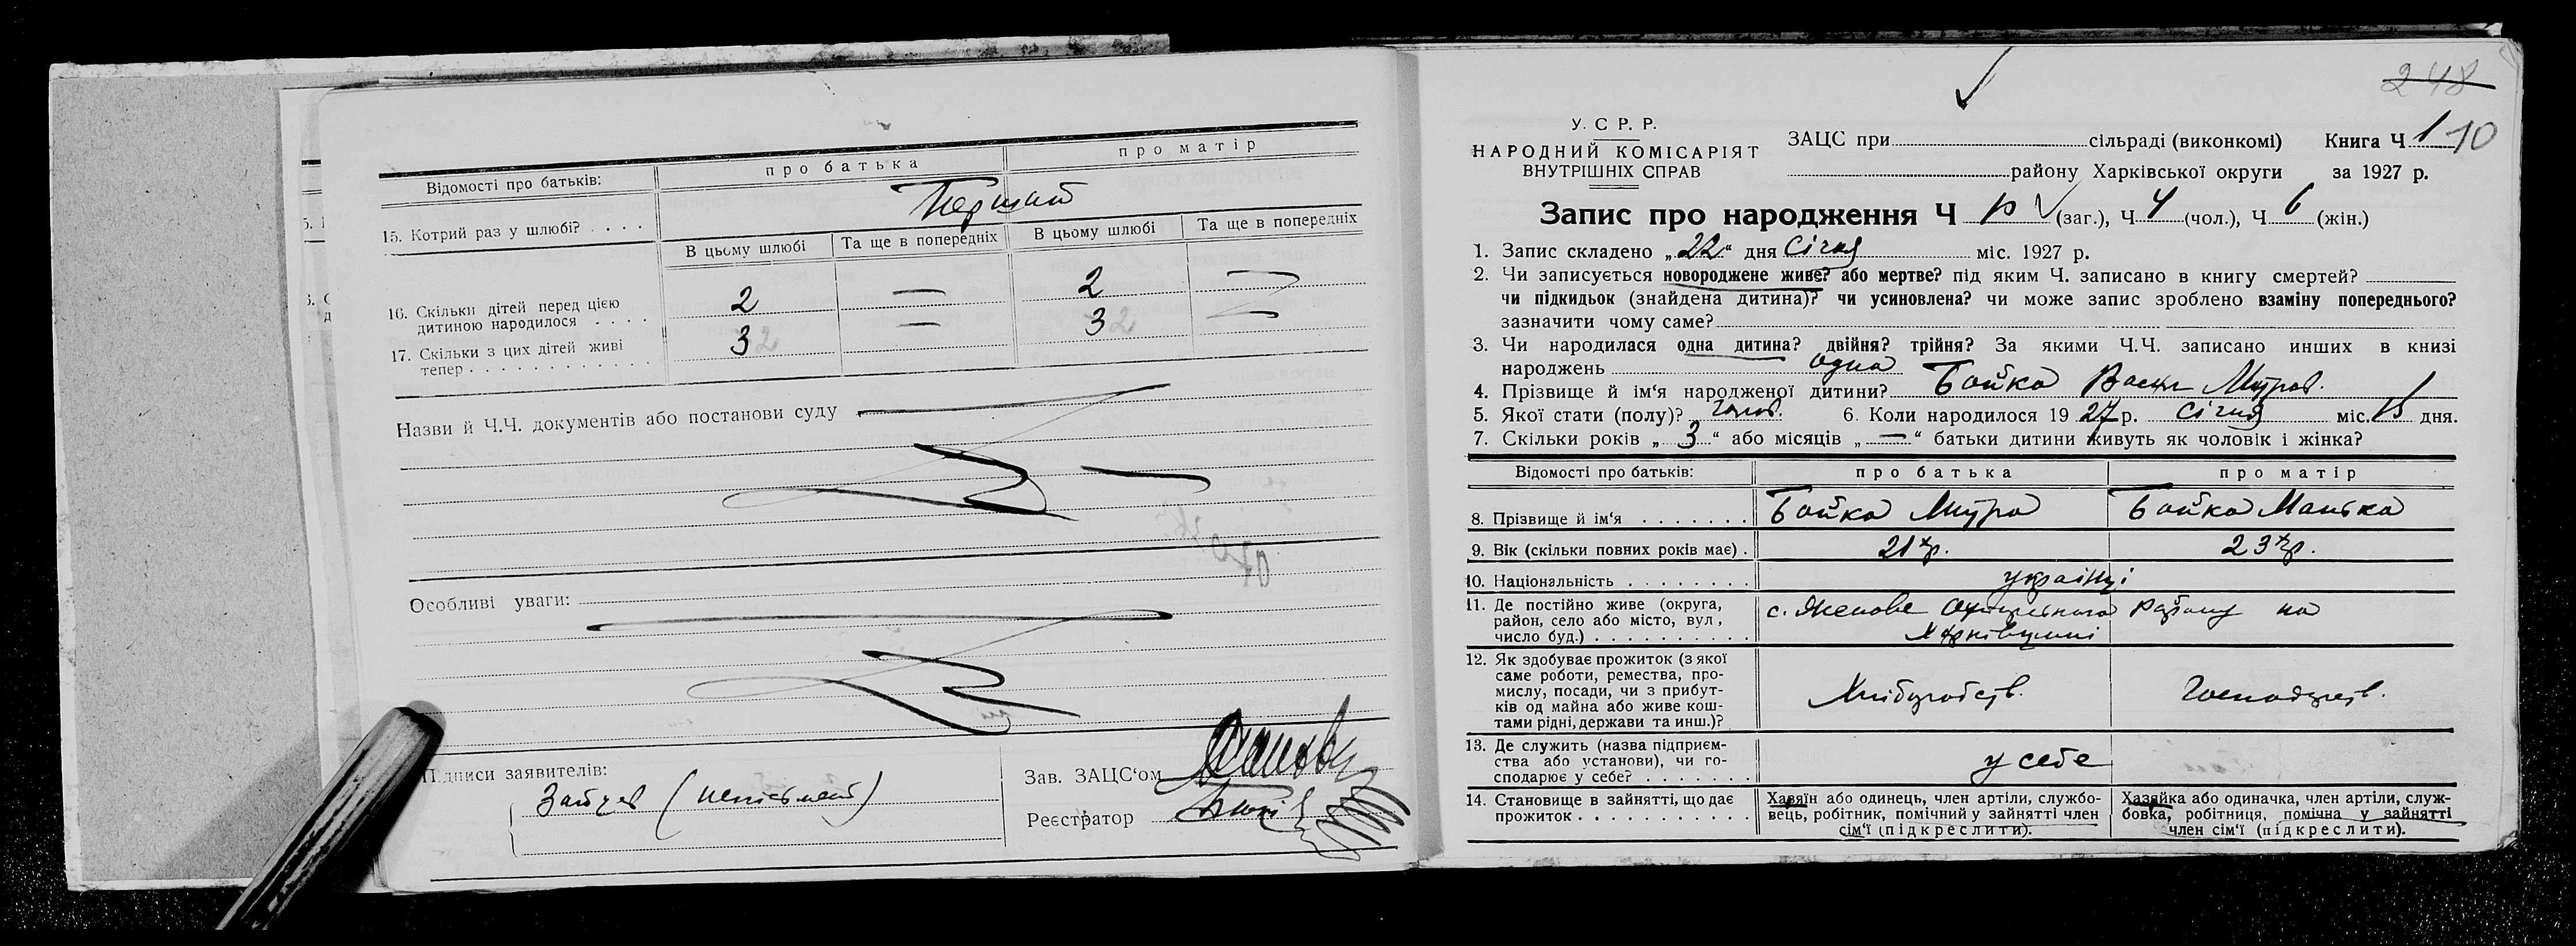 про батька про матір
Відомості про батьків:
15. Котрий раз у шлюбі? . . . . Перший
В цьому шлюбі Та ще в попередніх В цьому шлюбі Та ще в попередніх
16. Скільки дітей перед цією
дитиною народилося . . . . 2 — 2 —
17. Скільки з цих дітей живі
тепер . . . . . . . . . . . . 3 — 3 —
Назви й Ч.Ч. документів або постанови суду
Особливі уваги:
Підписи заявителів:
(неписьмен)
Зав. ЗАЦС'ом
Реєстратор
248
У. С Р. Р.
НАРОДНИЙ КОМІСАРІЯТ
ВНУТРІШНІХ СПРАВ
ЗАЦС при сільраді (виконкомі) Книга Ч 1 10
району Харківської округи за 1927 р.
Запис про народження Ч 10 (заг.), Ч 4 (чол.), Ч 6 (жін.)
1. Запис складено „22" дня Січня міс. 1927 р.
2. Чи записується новороджене живе? або мертве? під яким Ч. записано в книгу смертей?
чи підкидьок (знайдена дитина)? чи усиновлена? чи може запис зроблено взаміну попереднього?
зазначити чому саме?
3. Чи народилася одна дитина? двійня? трійня? За якими Ч.Ч. записано инших в книзі
народжень одна
4. Прізвище й ім'я народженої дитини? Бойко Васил Митров.
5. Якої стати (полу)? чолов. 6. Коли народилося 1927 р. січня міс. 15 дня.
7. Скільки років „3" або місяців „—" батьки дитини живуть як чоловік і жінка?
Відомості про батьків: про батька про матір
8. Прізвище й ім'я . . . . . . . Бойко Митро Бойко Манька
9. Вік (скільки повних років має) . 21 р. 23 р.
10. Національність . . . . . . . . українці
11. Де постійно живе (округа,
район, село або місто, вул,
число буд.) . . . . . . . . . . с. району на
Харківщині
12. Як здобуває прожиток (з якої
саме роботи, ремества, про-
мислу, посади, чи з прибут-
ків од майна або живе кош-
тами рідні, держави та инш.)? Хліборобств. Господарств.
13. Де служить (назва підприєм-
ства або установи), чи го-
сподарює у себе? . . . . . . . у себе
14. Становище в зайнятті, що дає
прожиток . . . . . . . . . . .
Хазяїн або одинець, член артіли, службо-
вець, робітник, помічний у зайнятті член
сім'ї (підкреслити).
Хазяйка або одиначка, член артіли, служ-
бовка, робітниця, помічна у зайнятті
член сім'ї (підкреслити).